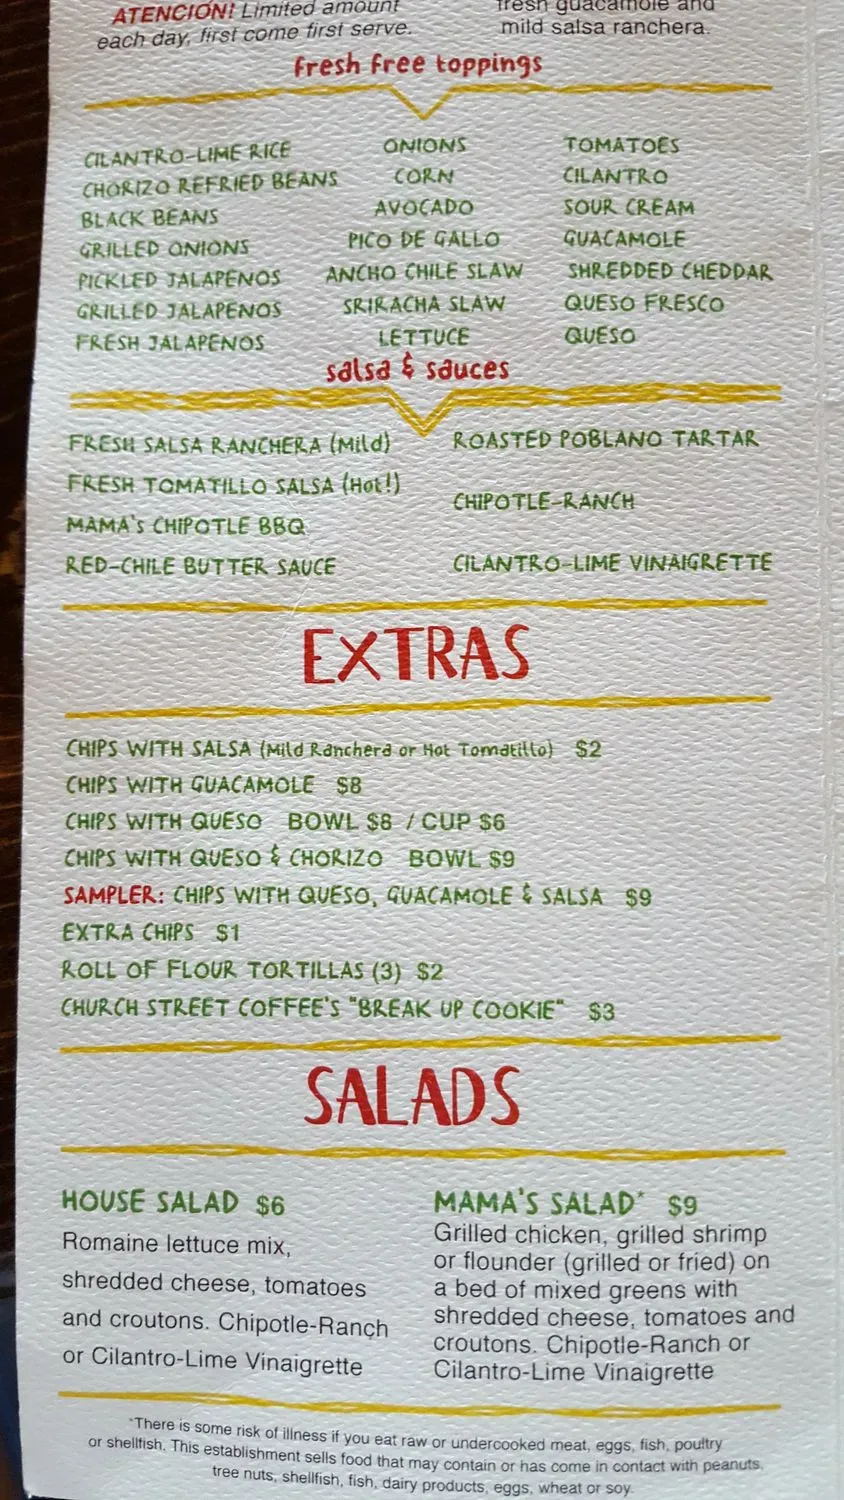 ATENCIÓN! Limited amount
each day, first come first serve.
fresh guacamole and
mild salsa ranchera.
fresh free toppings
CILANTRO-LIME RICE
CHORIZO REFRIED BEANS
BLACK BEANS
GRILLED ONIONS
PICKLED JALAPENOS
GRILLED JALAPENOS
FRESH JALAPENOS
ONIONS
CORN
AVOCADO
PICO DE GALLO
ANCHO CHILE SLAW
SRIRACHA SLAW
LETTUCE
TOMATOES
CILANTRO
SOUR CREAM
GUACAMOLE
SHREDDED CHEDDAR
QUESO FRESCO
QUESO
salsa & sauces
FRESH SALSA RANCHERA (Mild)
FRESH TOMATILLO SALSA (Hot!)
MAMA's CHIPOTLE BBQ
RED-CHILE BUTTER SAUCE
ROASTED POBLANO TARTAR
CHIPOTLE-RANCH
CILANTRO-LIME VINAIGRETTE
EXTRAS
CHIPS WITH SALSA (Mild Ranchera or Hot Tomatillo) $2
CHIPS WITH GUACAMOLE $8
CHIPS WITH QUESO BOWL $8 / CUP $6
CHIPS WITH QUESO & CHORIZO BOWL $9
SAMPLER: CHIPS WITH QUESO, GUACAMOLE & SALSA $9
EXTRA CHIPS $1
ROLL OF FLOUR TORTILLAS (3) $2
CHURCH STREET COFFEE'S "BREAK UP COOKIE" $3
SALADS
HOUSE SALAD $6
Romaine lettuce mix,
shredded cheese, tomatoes
and croutons. Chipotle-Ranch
or Cilantro-Lime Vinaigrette
MAMA'S SALAD* $9
Grilled chicken, grilled shrimp
or flounder (grilled or fried) on
a bed of mixed greens with
shredded cheese, tomatoes and
croutons. Chipotle-Ranch or
Cilantro-Lime Vinaigrette
*There is some risk of illness if you eat raw or undercooked meat, eggs, fish, poultry
or shellfish. This establishment sells food that may contain or has come in contact with peanuts,
tree nuts, shellfish, fish, dairy products, eggs, wheat or soy.